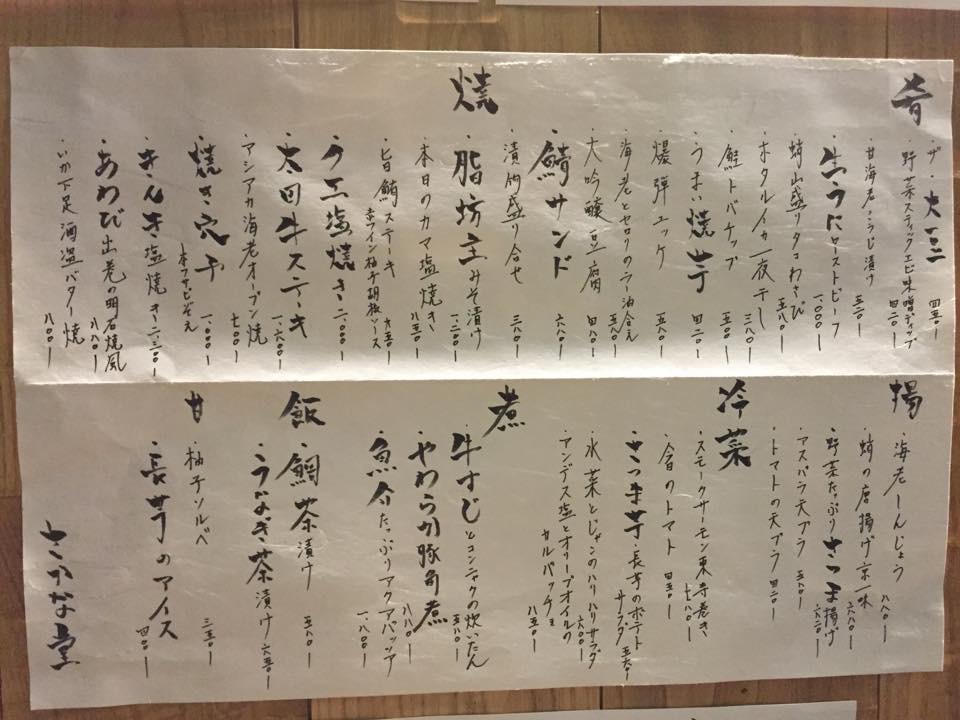 肴
・ザ・大豆 四五〇ー
・野菜スティックエビ味噌ディップ 四二〇ー
・甘海老こうじ漬け 五二〇ー
・生うにローストビーフ 一、〇〇〇ー
・蛸山盛りタコわさび 五八〇ー
・ホタルイカ一夜干し 三八〇ー
・鮭トバチップ 五八〇ー
・うまい焼芋 四二〇ー
・爆弾ユッケ 五八〇ー
・海老とセロリのラー油合え 五八〇ー
・大吟醸豆腐 四八〇ー
・鯖サンド 六八〇ー
・漬物盛り合せ 三八〇ー
焼
・脂坊主みそ漬け 一、二〇〇ー
・本日のカマ塩焼き
・旨鮪ステーキ
赤ワイン柚子胡椒ソース 九五〇ー
・クエ塩焼き 二、〇〇〇ー
・太田牛ステーキ 一、六〇〇ー
・アシアカ海老オーブン焼 七〇〇ー
・焼き穴子
本ワサビぞえ 一、〇〇〇ー
・きんき塩焼き 二、二〇〇ー
・あわび出巻の明石焼風 八八〇ー
・いか下足酒盗バター焼 八〇〇ー
揚
・海老しんじょう 八八〇ー
・蛸の唐揚げ京一味 六八〇ー
・野菜たっぷりさつま揚げ 六二〇ー
・アスパラ天プラ 五八〇ー
・トマトの天プラ 四二〇ー
冷菜
・スモークサーモン東寺巻き 七八〇ー
・今日のトマト 四五〇ー
・さつま芋と長芋のポテト
サラダ 五六〇ー
・水菜とじゃこのハリハリサラダ 六〇〇ー
・アンデス塩とオリーブオイルの
カルパッチョ 八五〇ー
煮
・牛すじとコンニャクの炊いたん 五八〇ー
・やわらか豚角煮 八八〇ー
・魚介たっぷりアクアパッツア 一、八〇〇ー
飯
・鯛茶漬け 五八〇ー
・うなぎ茶漬け 六五〇ー
甘
・柚子ソルベ 三五〇ー
・長芋のアイス 四〇〇ー
さかな堂